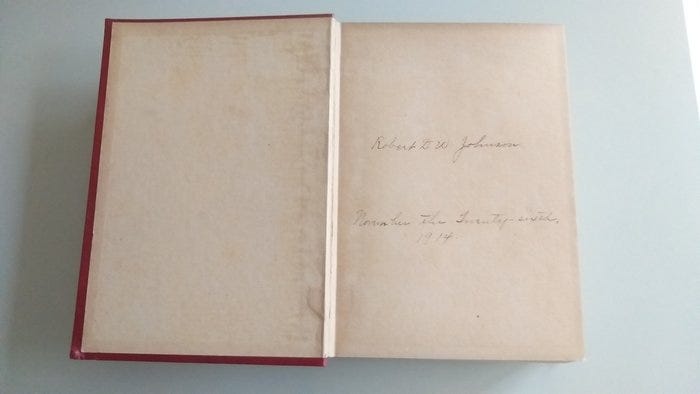 Robert D W Johnson
November the Twenty-sixth,
1914.